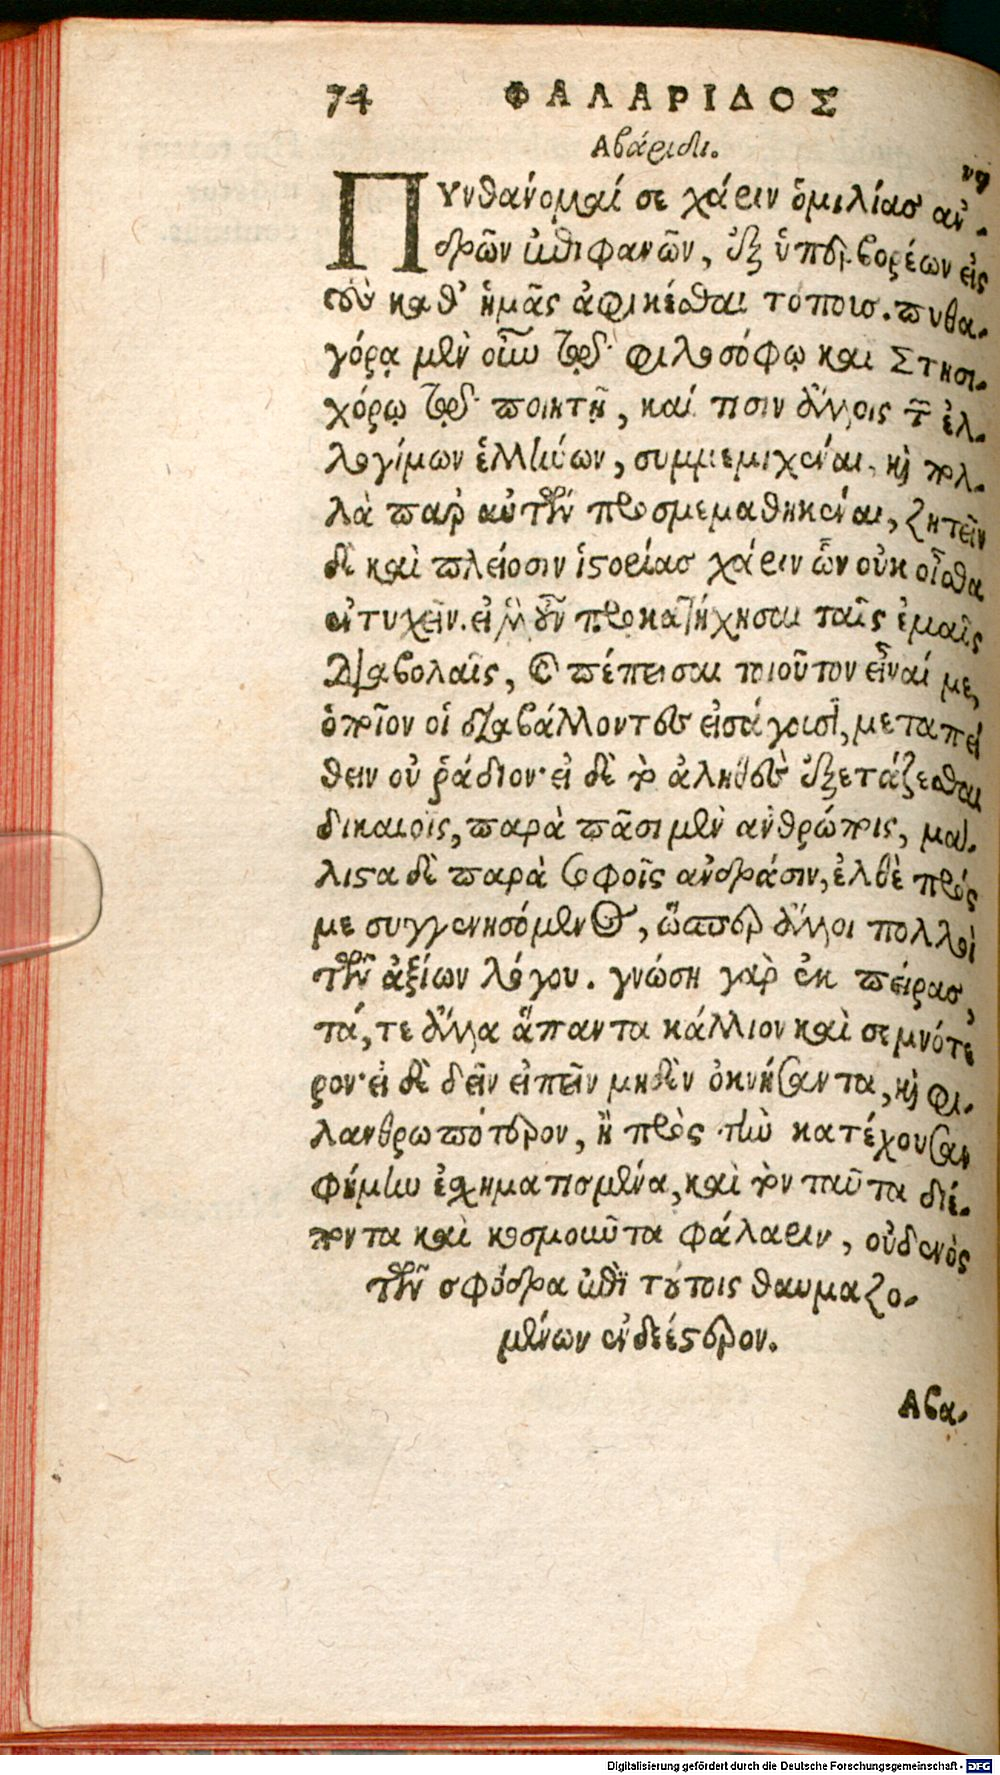 74 ΦΑΛΑΡΙΔΟΣ
Ἀβάριδι. νϛ
Πυνθάνομαί σε χάριν ὁμιλίας ἀν-
δρῶν ἐπιφανῶν, ἐξ ὑπερβορέων εἰς
τοὺς καθ' ἡμᾶς ἀφικέσθαι τόπους. πυθα-
γόρᾳ μὲν οὖν τῷ φιλοσόφῳ καὶ Στησι-
χόρῳ τῷ ποιητῇ, καί τισιν ἄλλοις τῶν ἐλ-
λογίμων ἑλλήνων, συμμεμιχέναι, καὶ πολ-
λὰ παρ' αὐτῶν προσμεμαθηκέναι, ζητεῖν
δὲ καὶ πλείοσιν ἱστορίας χάριν ὧν οὐκ οἶσθα
ἐντυχεῖν. εἰ μὲν οὖν προκατήχησαι ταῖς ἐμαῖς
διαβολαῖς, καὶ πέπεισαι τοιοῦτον εἶναί με,
ὁποῖον οἱ διαβάλλοντες εἰσάγουσι, μεταπεί
θειν οὐ ῥάδιον· εἰ δὲ τὸ ἀληθὲς ἐξετάζεσθαι
δικαιοῖς, παρὰ πᾶσι μὲν ἀνθρώποις, μά-
λιστα δὲ παρὰ σοφοῖς ἀνδράσιν, ἐλθὲ πρός
με συγγενησόμενος, ὥσπερ ἄλλοι πολλοὶ
τῶν ἀξίων λόγου. γνώσῃ γὰρ ἐκ πείρας,
τά, τε ἄλλα ἅπαντα κάλλιον καὶ σεμνότε
ρον· εἰ δὲ δεῖν εἰπεῖν μηδὲν ὀκνήσαντα, καὶ φι-
λανθρωπότερον, ἢ πρὸς τὴν κατέχουσαν
φήμην ἐσχηματισμένα, καὶ τὸν ταῦτα διέ-
ποντα καὶ κοσμοῦντα φάλαριν, οὐδενὸς
τῶν σφόδρα ἐπὶ τούτοις θαυμαζο-
μένων ἐνδεέστερον.
Ἀβα-
Digitalisierung gefördert durch die Deutsche Forschungsgemeinschaft - DFG